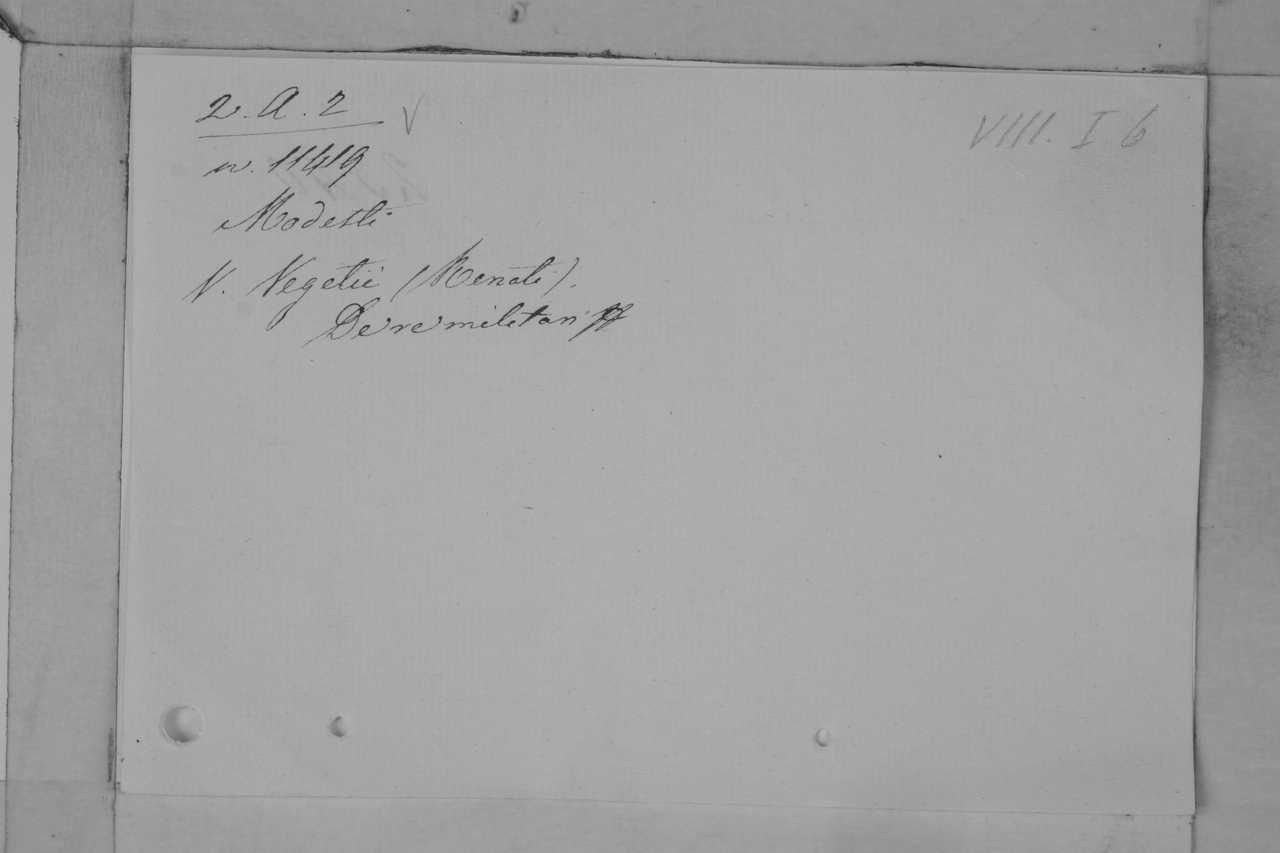 2. A. 2 V
VIII. I 6
n. 11419
Modesti
V. Vegetii (Renati).
De re militari